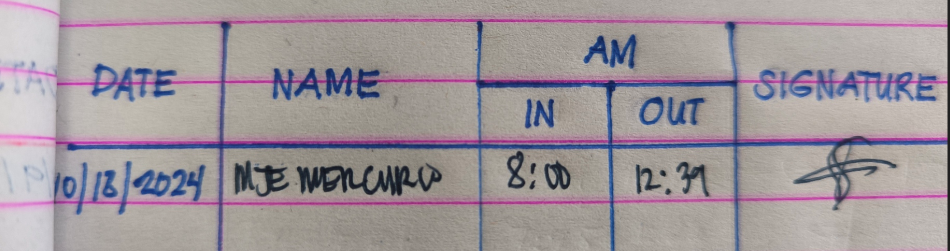 DATE NAME AM SIGNATURE
IN OUT
10/18/2024 MJE MERCURIO 8:00 12:39